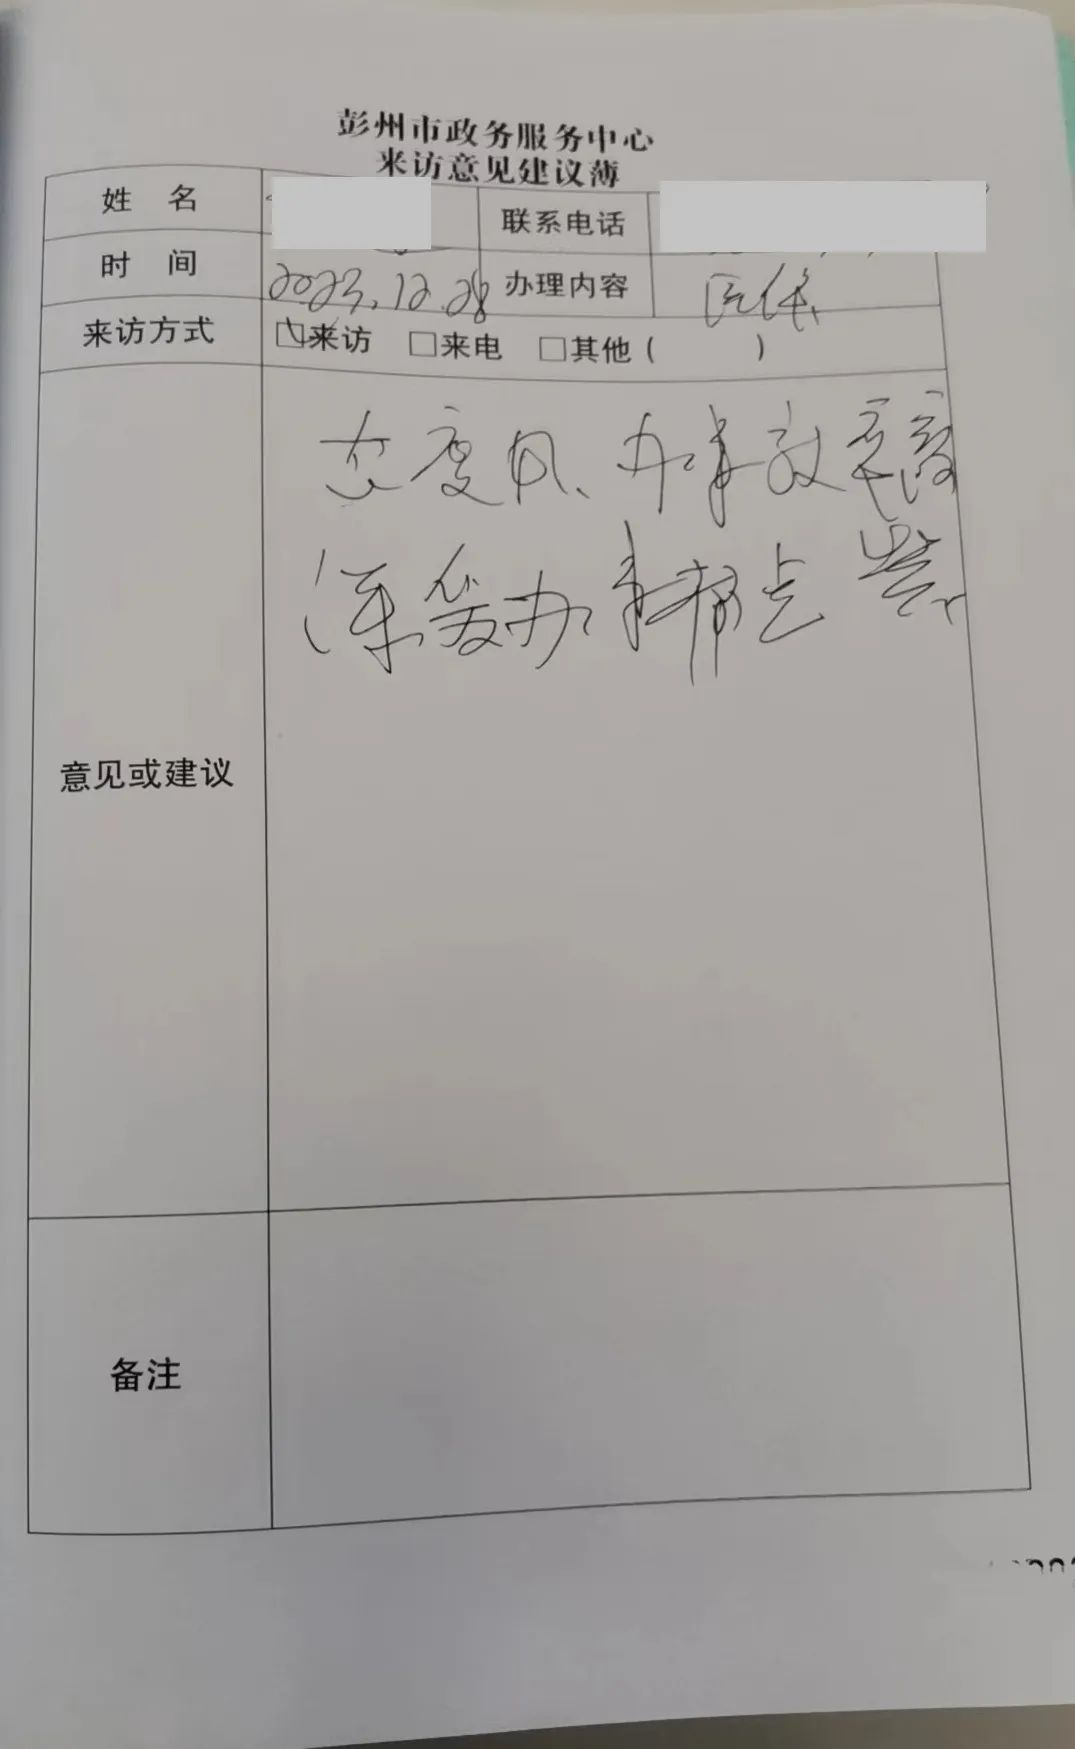 彭州市政务服务中心
来访意见建议薄
姓 名 联系电话
时 间 2023.12.28 办理内容 医保
来访方式 ☑来访 □来电 □其他（ ）
态度好、办事效率高
办事
意见或建议
备注